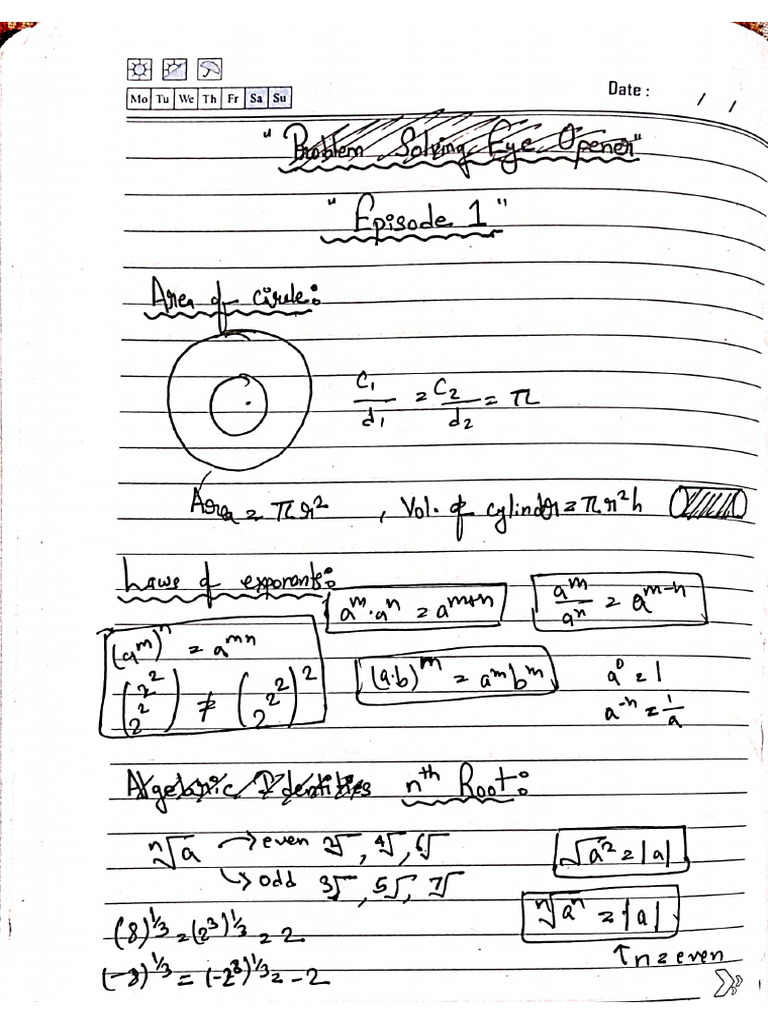 Mo Tu We Th Fr Sa Su
Date : / /
"Problem Solving Eye Opener"
"Episode 1"
Area of circle:
C₁/d₁ = C₂/d₂ = π
Area = πr² , Vol. of cylinder = πr²h
Laws of exponents:
aᵐ·aⁿ = aᵐ⁺ⁿ
aᵐ/aⁿ = aᵐ⁻ⁿ
(aᵐ)ⁿ = aᵐⁿ
(2^2^2^2) ≠ (2^2^2)^2
(a·b)ᵐ = aᵐbᵐ
a⁰ = 1
a⁻ⁿ = 1/a
Algebraic Identities nth Root:
ⁿ√a → even 2√, 4√, 6√
↳ odd 3√, 5√, 7√
√a² = |a|
ⁿ√aⁿ = |a|
↑n = even
(8)^1/3 = (2³)^1/3 = 2
(-8)^1/3 = (-2³)^1/3 = -2